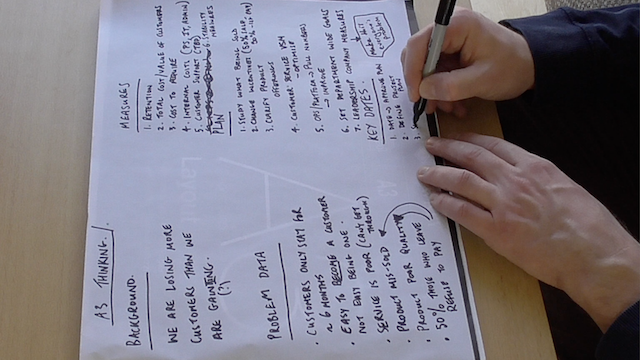 A3 THINKING.
BACKGROUND.
WE ARE LOSING MORE
CUSTOMERS THAN WE
ARE GAINING.
(?)
PROBLEM DATA
• CUSTOMERS ONLY STAY FOR
~ 6 MONTHS
• EASY TO BECOME A CUSTOMER
NOT EASY BEING ONE.
• SERVICE IS POOR (CAN'T GET
THROUGH)
• PRODUCT MIS-SOLD
• PRODUCT POOR QUALITY
• 50% THOSE WHO LEAVE
REFUSE TO PAY
MEASURES
1. RETENTION
2. TOTAL COST/VALUE OF CUSTOMERS
3. COST TO ACQUIRE
4. INTERNAL COSTS (PS, IT, ADMIN)
5. CUSTOMER SUPPORT
6. STABILITY
MEASURES
PLAN
1. STUDY WHAT BEING SOLD
2. CHANGE INCENTIVES
3. CLARIFY PRODUCT
OFFERINGS
4. CUSTOMER SERVICE VSM
→ OPTIMISE
5. → PULL NUMBERS
→ IMPROVE
6. SET DEPARTMENT WIDE GOALS
7. LEADERSHIP COMPANY MEASURES
KEY DATES.
1. → APPROVE PLAN
2. DEFINE PROJECT
3.